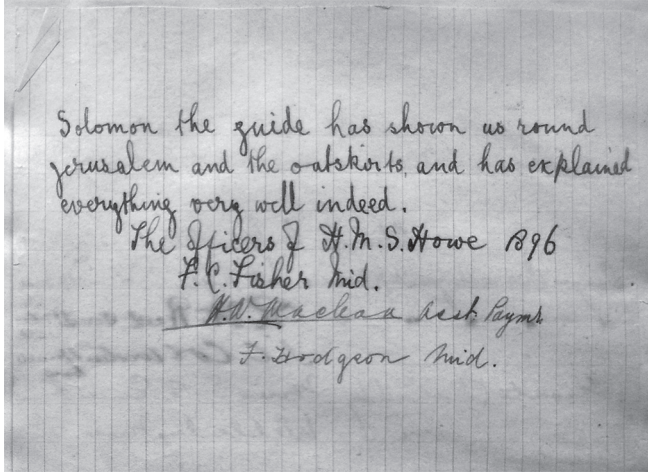 Solomon the guide has shown us round
Jerusalem and the outskirts, and has explained
everything very well indeed.
The Officers of H.M.S. Howe 1896
F. C. Fisher Mid.
H. W. Maclean Asst. Paymr.
F. Hodgson Mid.